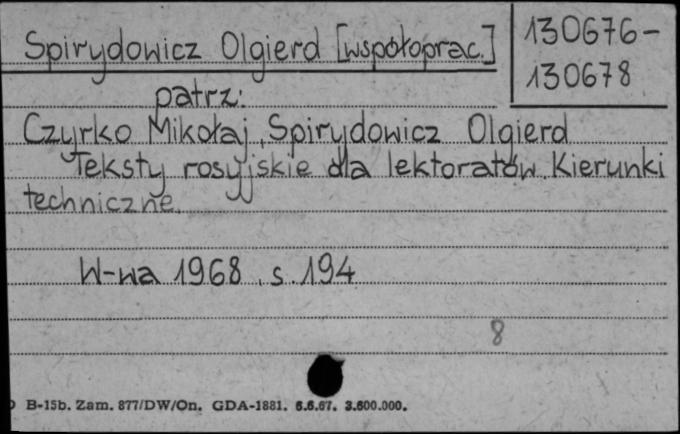 Spirydowicz Olgierd [współoprac.]
130676-
130678
patrz:
Czyrko Mikołaj, Spirydowicz Olgierd
Teksty rosyjskie dla lektoratów. Kierunki
techniczne.
W-wa 1968, s. 194
8
B-15b. Zam. 877/DW/On. GDA-1881. 6.6.67. 3.600.000.